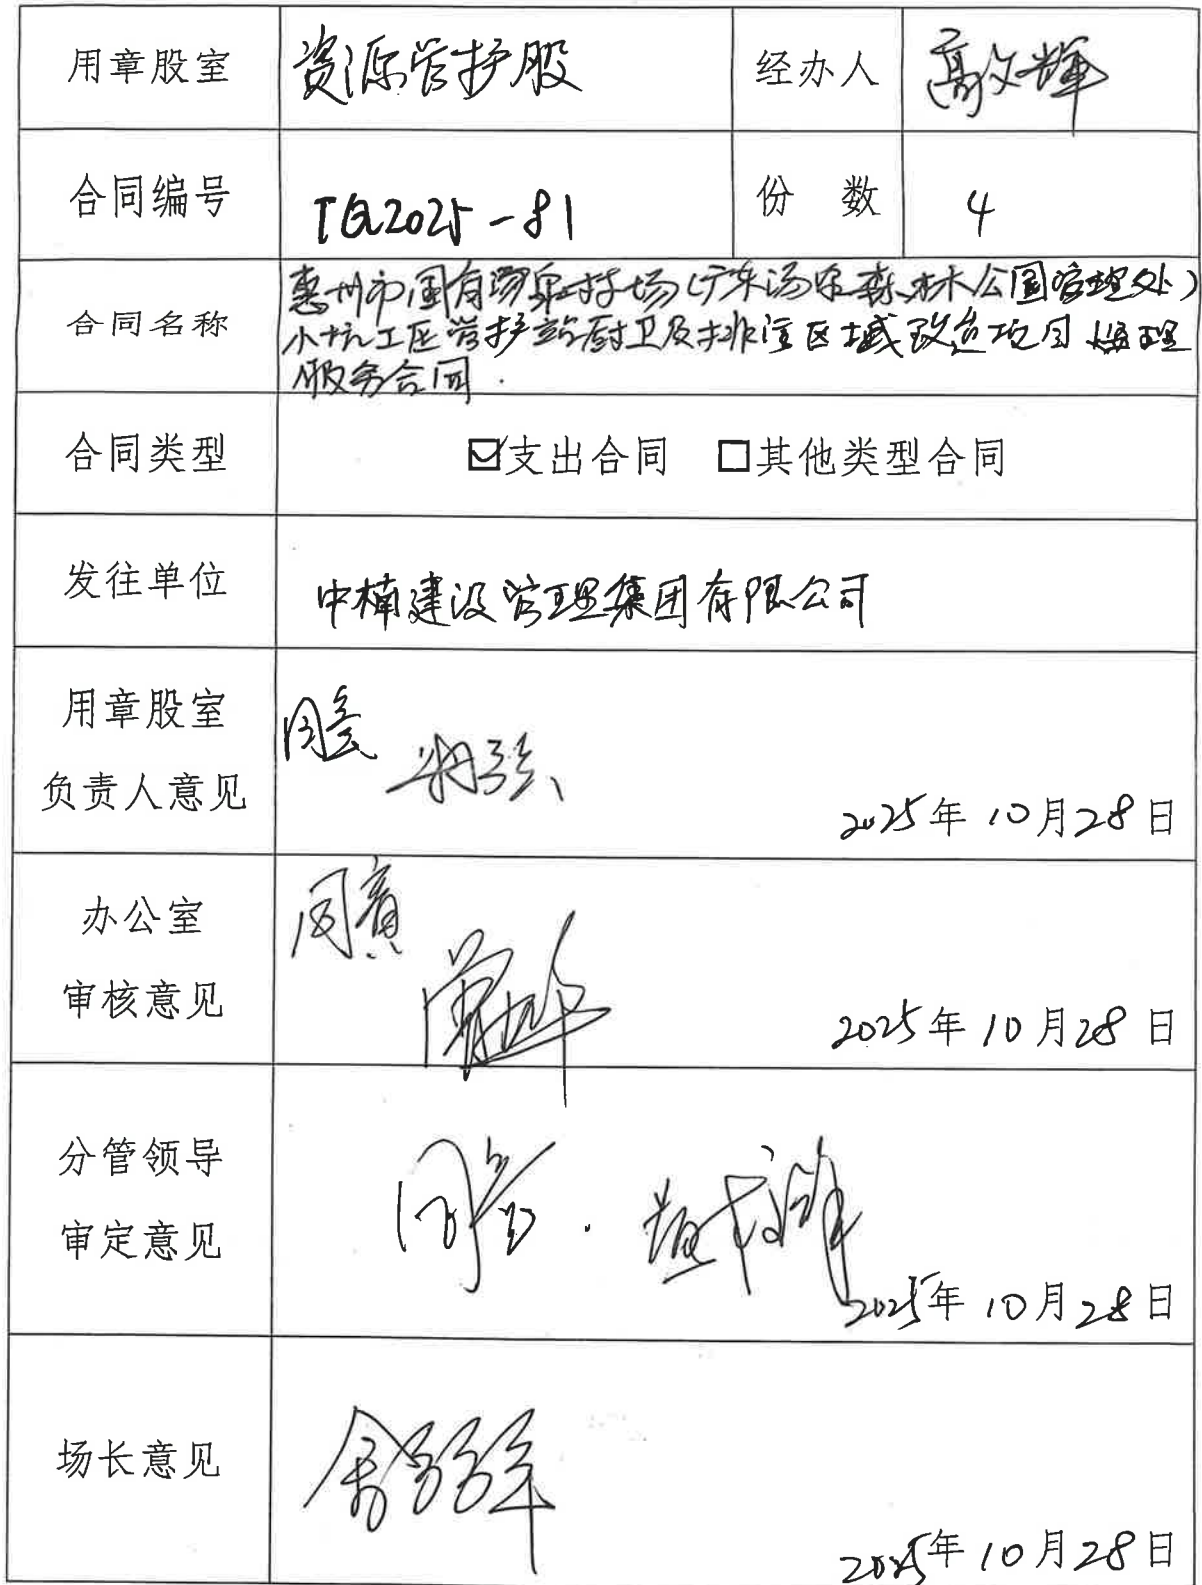 用章股室 资源管护股 经办人 高文辉
合同编号 TQ2025-81 份 数 4
合同名称 惠州市国有汤泉林场(广东汤泉森林公园管理处)
小坑工区管护站厨卫及排洪区域改造项目监理
服务合同.
合同类型 ☑支出合同 □其他类型合同
发往单位 中楠建设管理集团有限公司
用章股室
负责人意见
同意
2025年10月28日
办公室
审核意见
同意
2025年10月28日
分管领导
审定意见
同意.
2025年10月28日
场长意见
2025年10月28日